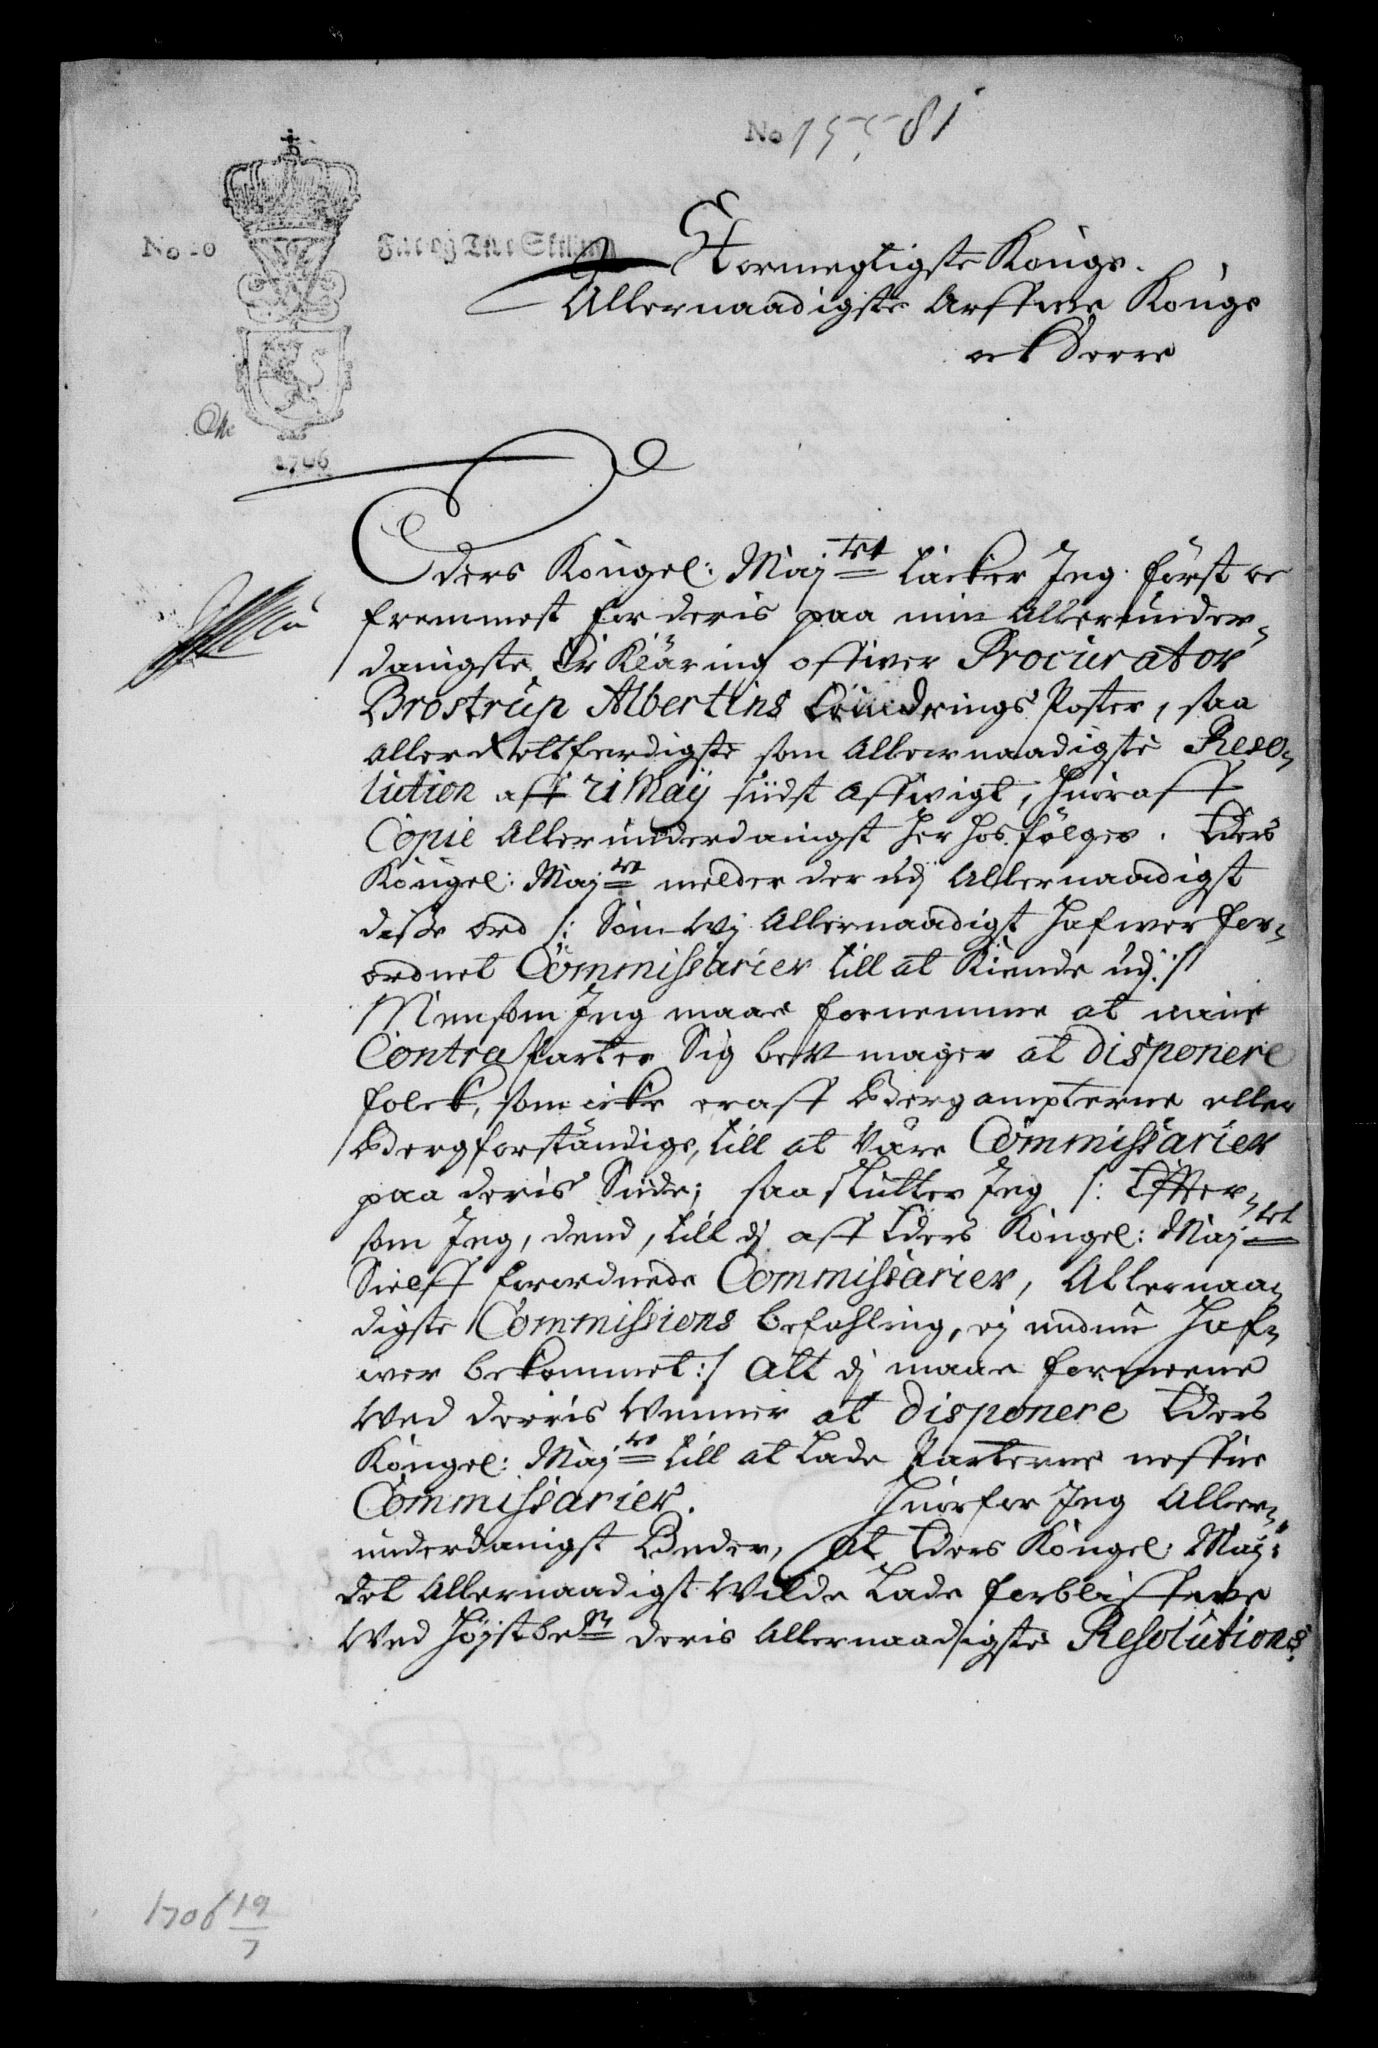 No 15581
No 10
Fire og Tive Skilling
Stormegtigste Konge.
Allernaadigste Arffwe Konge
oc Herre
1706
Eders Kongel: Maj.tet tacker Jeg först oc
fremmest for deris paa min Allerunder-
danigste Erkläring offwer Procurator
Brostrup Albertins Poster, saa
Allerrettferdigste som Allernaadigste Reso-
lution aff 21 Maÿ sidst affvigt, huoraff
Copie Allerunderdanigst her hos fölger. Eders
Kongel: Maj.tet melder der udj Allernaadigst
disse ord /: Som Wj Allernaadigst hafwer for-
ordnet Commissarier till at kiende udj :/
Men som Jeg maae fornemme at mine
Contra Parter Sig bemager at disponere
folck, som icke er aff Bergampterne eller
Bergforständige, till at väre Commissarier
paa deris Side; saa slutter Jeg /: Effter-
som Jeg, dend, till dj aff Eders Kongel: Maj.tet
Sielff forordnede Commissarier, Allernaa-
digste Commissions befahling, ej endnu haf-
wer bekommet :/ Att dj maae formeene
Wed derris Venner at disponere Eders
Kongel: Maj.tet till at lade Parterne neffne
Commissarier. Huorfor Jeg Aller-
underdanigst Beder, At Eders Kongel: Maj:
det Allernaadigst Wilde lade forbliffwe
Wed Höjstbe.te deris Allernaadigste Resolutions
1706 19/7